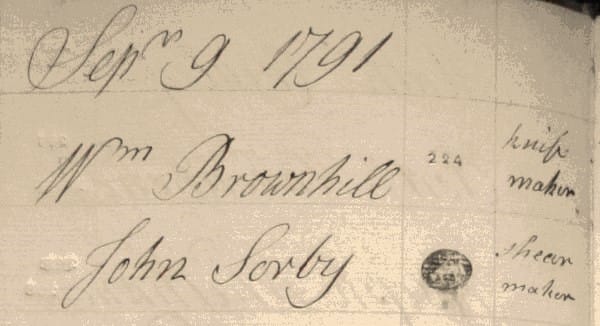 Sepr 9 1791
Wm Brownhill 224 knife maker
John Sorby shear maker